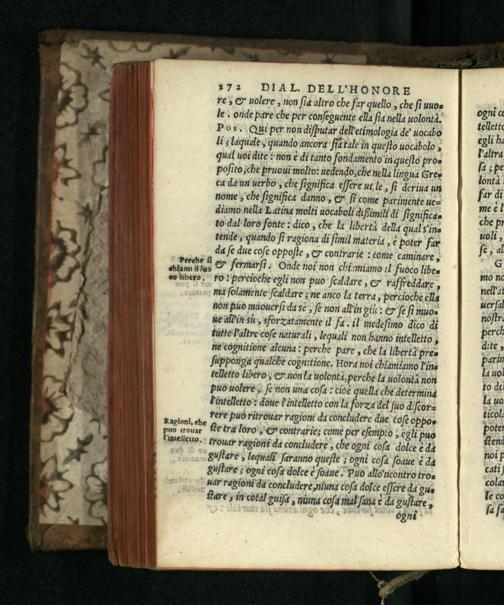 272 DIAL. DELL'HONORE
re, & uolere, non sia altro che far quello, che si uuo-
le. onde pare che per conseguente ella sia nella uolontà.
Pos. Qui per non disputar dell'etimologia de' uocabo
li; laquale, quando ancora sia tale in questo uocabolo,
qual uoi dite: non è di tanto fondamento in questo pro-
posito, che pruoui molto: uedendo, che nella lingua Gre-
ca da un uerbo, che significa essere utile, si deriua un
nome, che significa danno, & si come parimente ue-
diamo nella Latina molti uocaboli dissimili di significa-
to dal loro fonte: dico, che la libertà della qual s'in-
tende, quando si ragiona di simil materia, è poter far
da se due cose opposte, & contrarie: come caminare,
Perche si
chiami il fuo
co libero.
& fermarsi. Onde noi non chiamiamo il fuoco libe-
ro: percioche egli non può scaldare, & raffreddare,
ma solamente scaldare; ne anco la terra, percioche ella
non può muouersi da sè, se non all'in giù: & se si muo-
ue all'in su, sforzatamente il fa. il medesimo dico di
tutte l'altre cose naturali, lequali non hanno intelletto,
ne cognitione alcuna: perche pare, che la libertà pre-
supponga qualche cognitione. Hora noi chiamiamo l'in-
telletto libero, & non la uolontà, perche la uolontà non
può uolere, se non una cosa: cioè quella che determina
l'intelletto: doue l'intelletto con la forza del suo discor-
rere può ritrouar ragioni da concludere due cose oppo-
Ragioni, che
puo trouar
l'intelletto.
ste tra loro, & contrarie; come per esempio, egli può
trouar ragioni da concludere, che ogni cosa dolce è da
gustare, lequali saranno queste; ogni cosa soaue è da
gustare; ogni cosa dolce è soaue. Può allo'ncontro tro-
uar ragioni da concludere, niuna cosa dolce essere da gu-
stare, in cotal guisa, niuna cosa mal sana è da gustare,
ogni